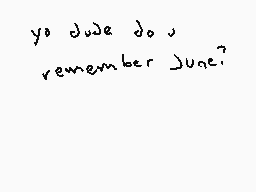 yo dude do u
remember June?